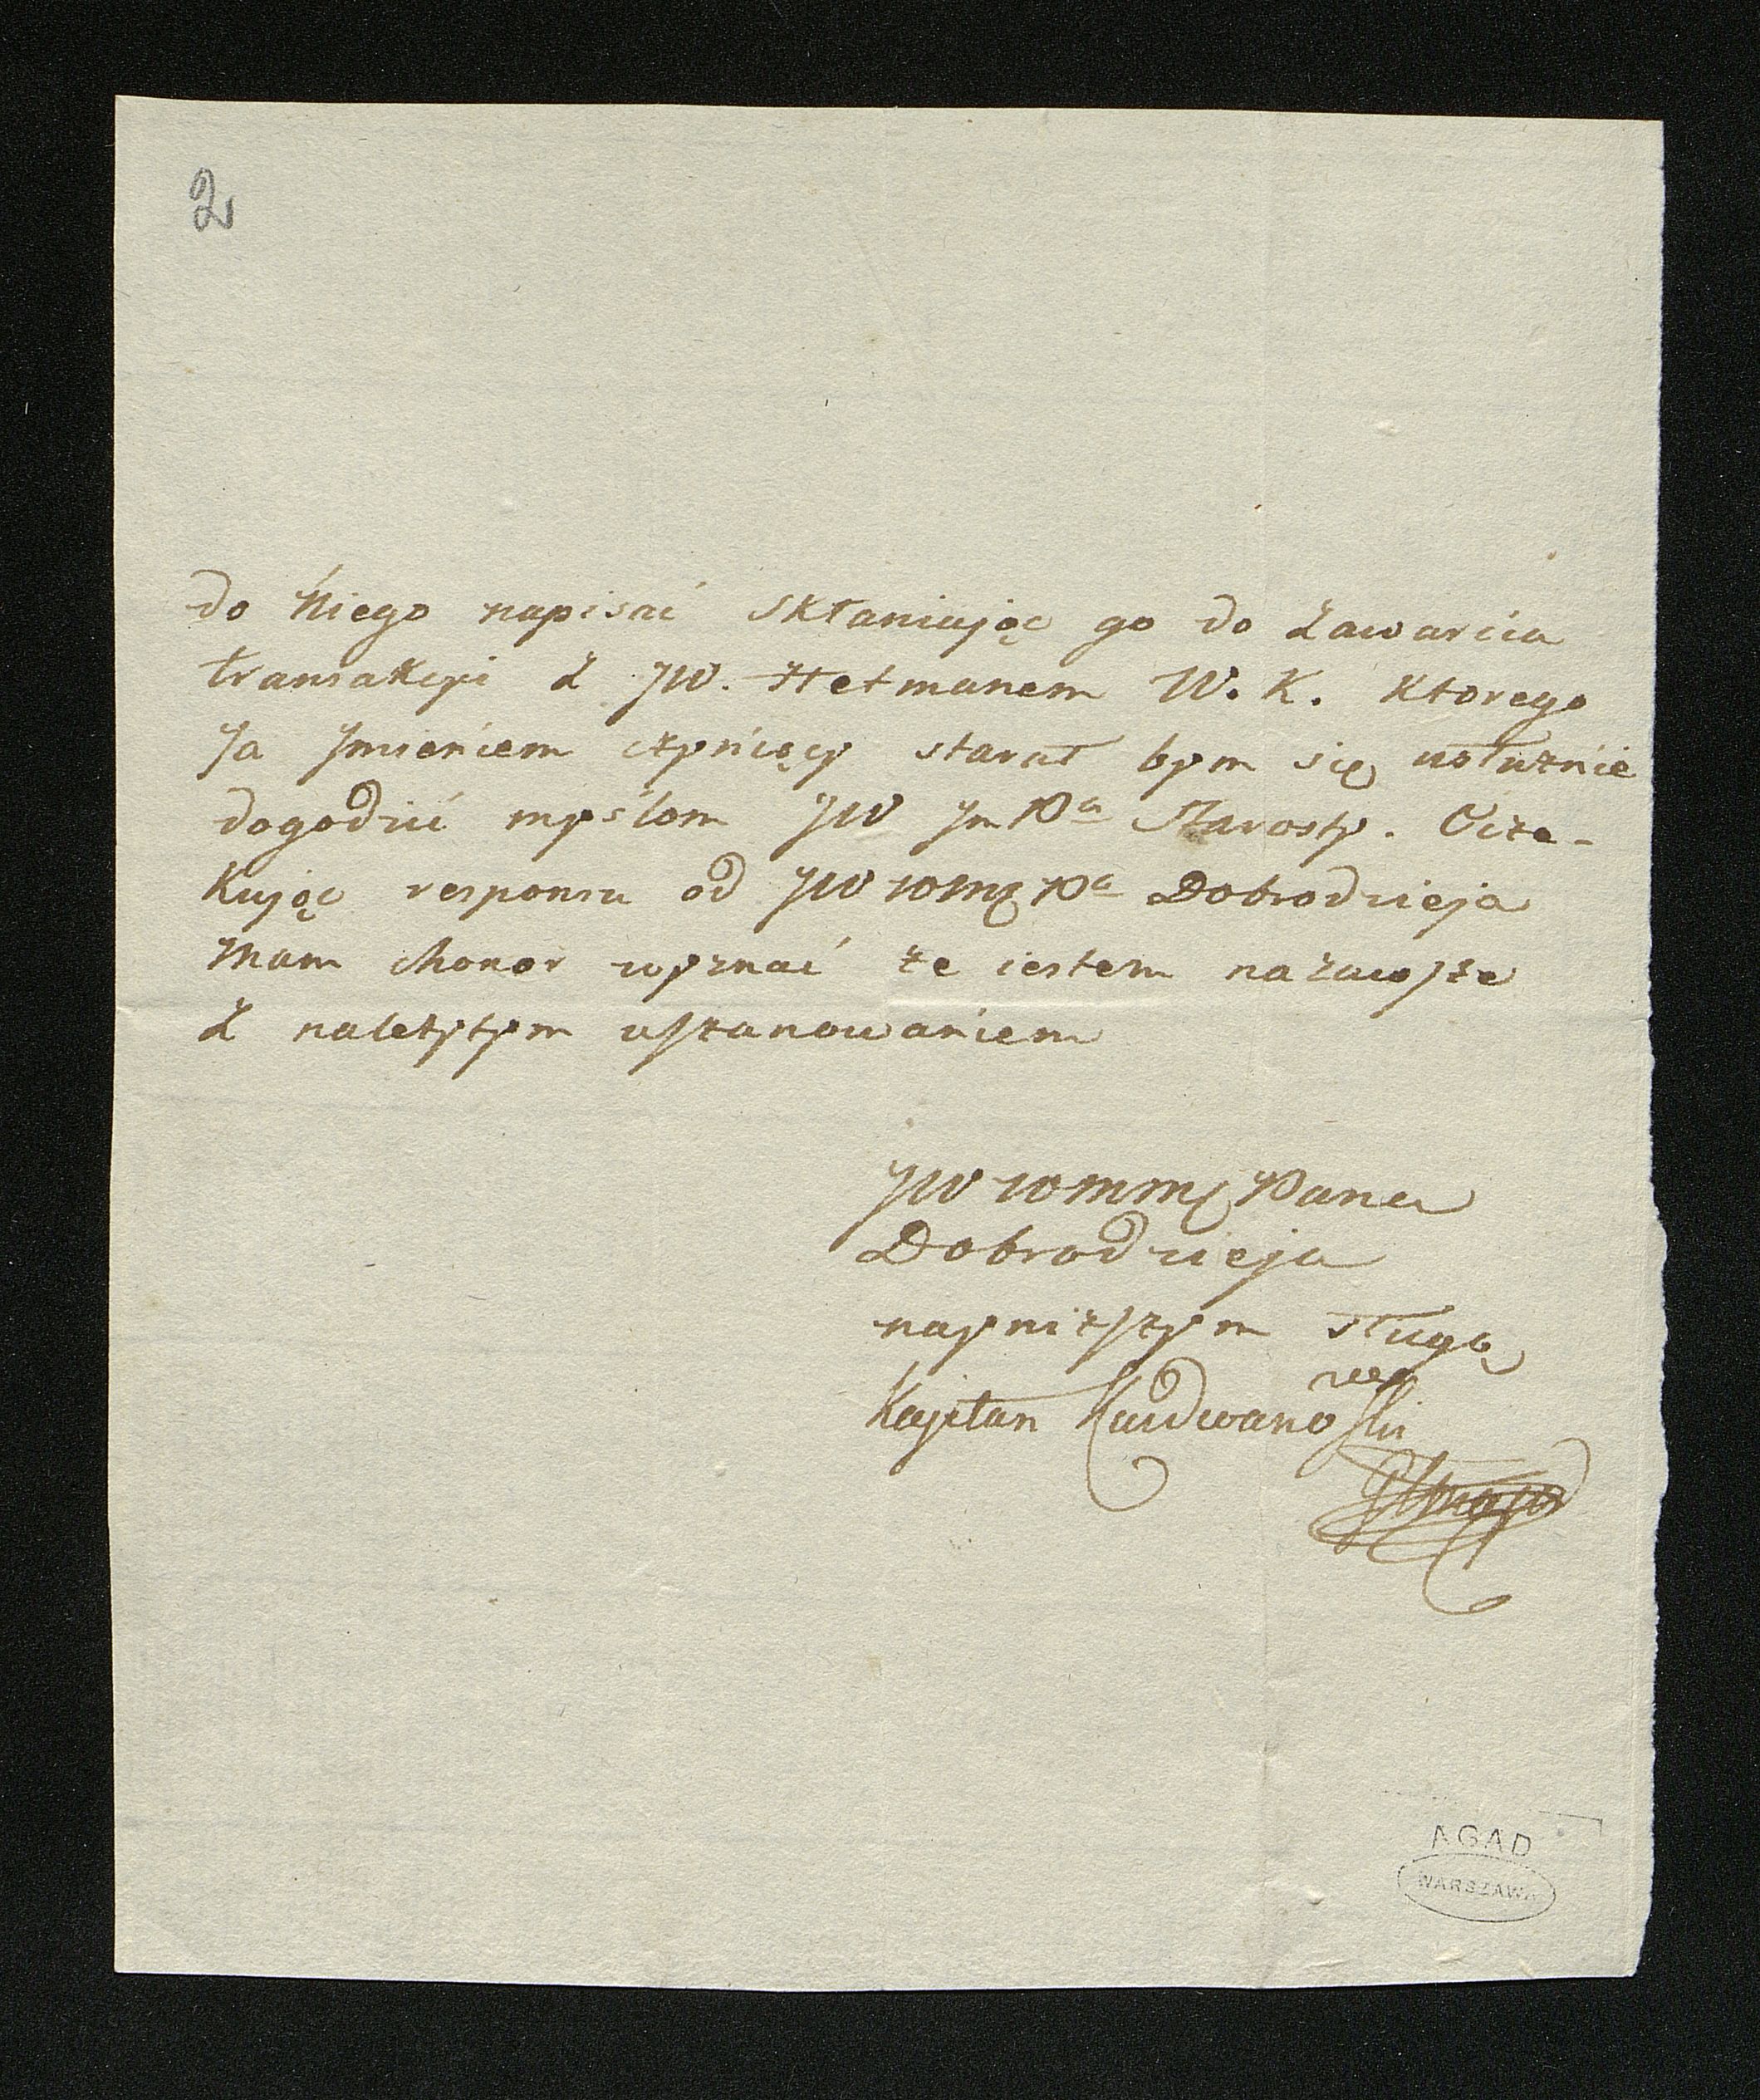 2
do niego napisać skłaniając go do zawarcia
transakcyi z JW. Hetmanem W. K. ktorego
Ja Jmieniem czyniący starał bym się usłużnie
dogodzić myślom JW Jm Pa Starosty. Ocze-
kując responsu od JW WM Pa Dobrodzieja
mam chonor wyznać że iestem na zawsze
z należytym uszanowaniem
JW WMM Pana
Dobrodzieja
nayniższym sługą
Kajetan
AGAD
WARSZAWA